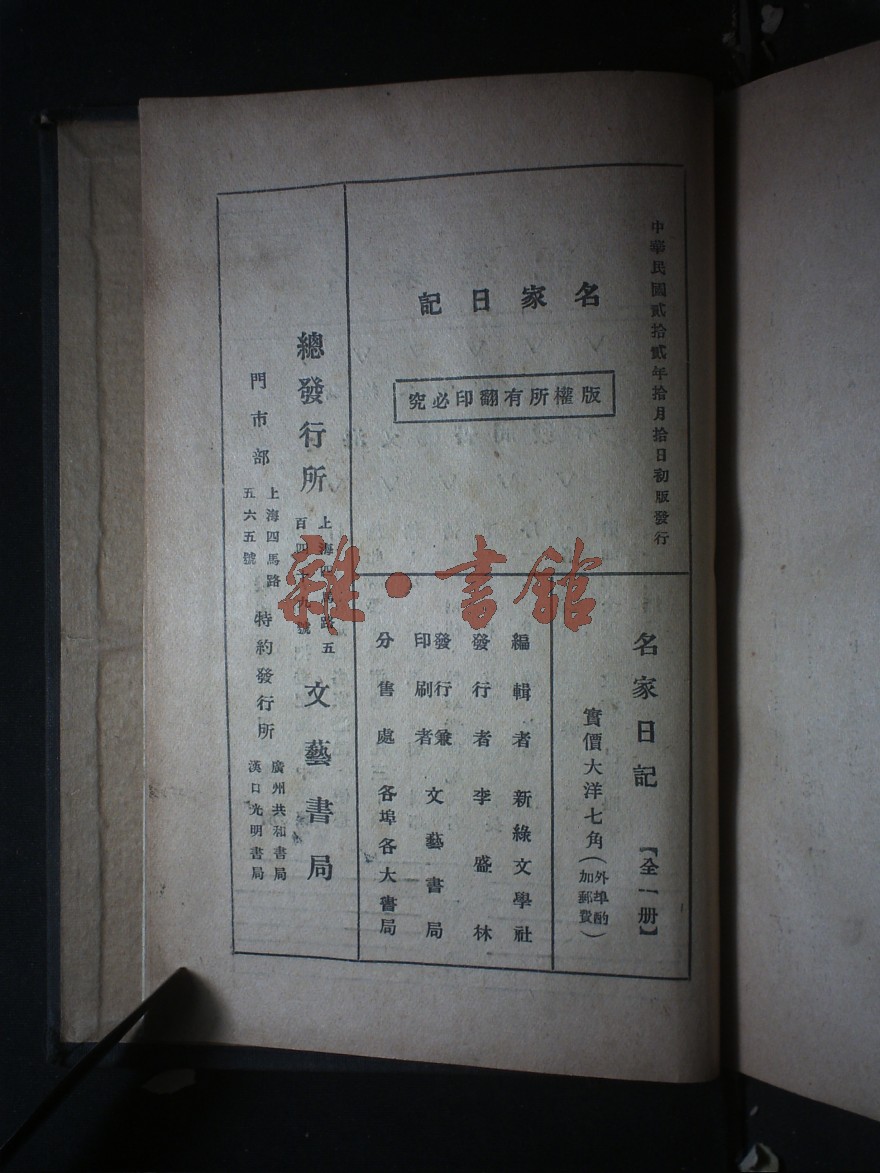 中華民國貳拾貳年拾月拾日初版發行
名家日記
版權所有翻印必究
名家日記【全一册】
實價大洋七角(外埠酌加郵費)
編輯者 新綠文學社
發行者 李盛林
發行兼印刷者 文藝書局
分售處 各埠各大書局
總發行所 上海四馬路五百四十九號 文藝書局
門市部 上海四馬路五六五號 特約發行所 廣州共和書局 漢口光明書局
雜·書館